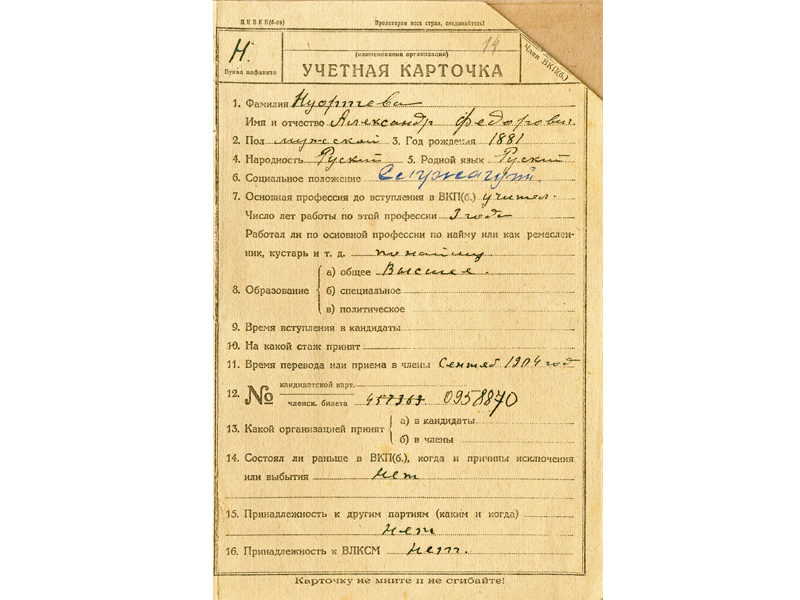 Ц К В К П (б-ов) Пролетарии всех стран, соединяйтесь!
Н.
Буква алфавита
14
(наименование организации)
УЧЕТНАЯ КАРТОЧКА
Член ВКП(б.)
1. Фамилия Нуортева
Имя и отчество Александр Федорович
2. Пол мужской 3. Год рождения 1881
4. Народность Руский 5. Родной язык Руский
6. Социальное положение Служащий.
7. Основная профессия до вступления в ВКП(б.) учител.
Число лет работы по этой профессии 3 года
Работал ли по основной профессии по найму или как ремеслен-
ник, кустарь и т. д. по найму
8. Образование
а) общее Высшее.
б) специальное
в) политическое
9. Время вступления в кандидаты
10. На какой стаж принят
11. Время перевода или приема в члены Сентяб 1904 год
12. № кандидатской карт.
членск. билета 457363 0958870
13. Какой организацией принят
а) в кандидаты
б) в члены
14. Состоял ли раньше в ВКП(б.), когда и причины исключения
или выбытия нет
15. Принадлежность к другим партиям (каким и когда)
нет
16. Принадлежность к ВЛКСМ нет.
Карточку не мните и не сгибайте!